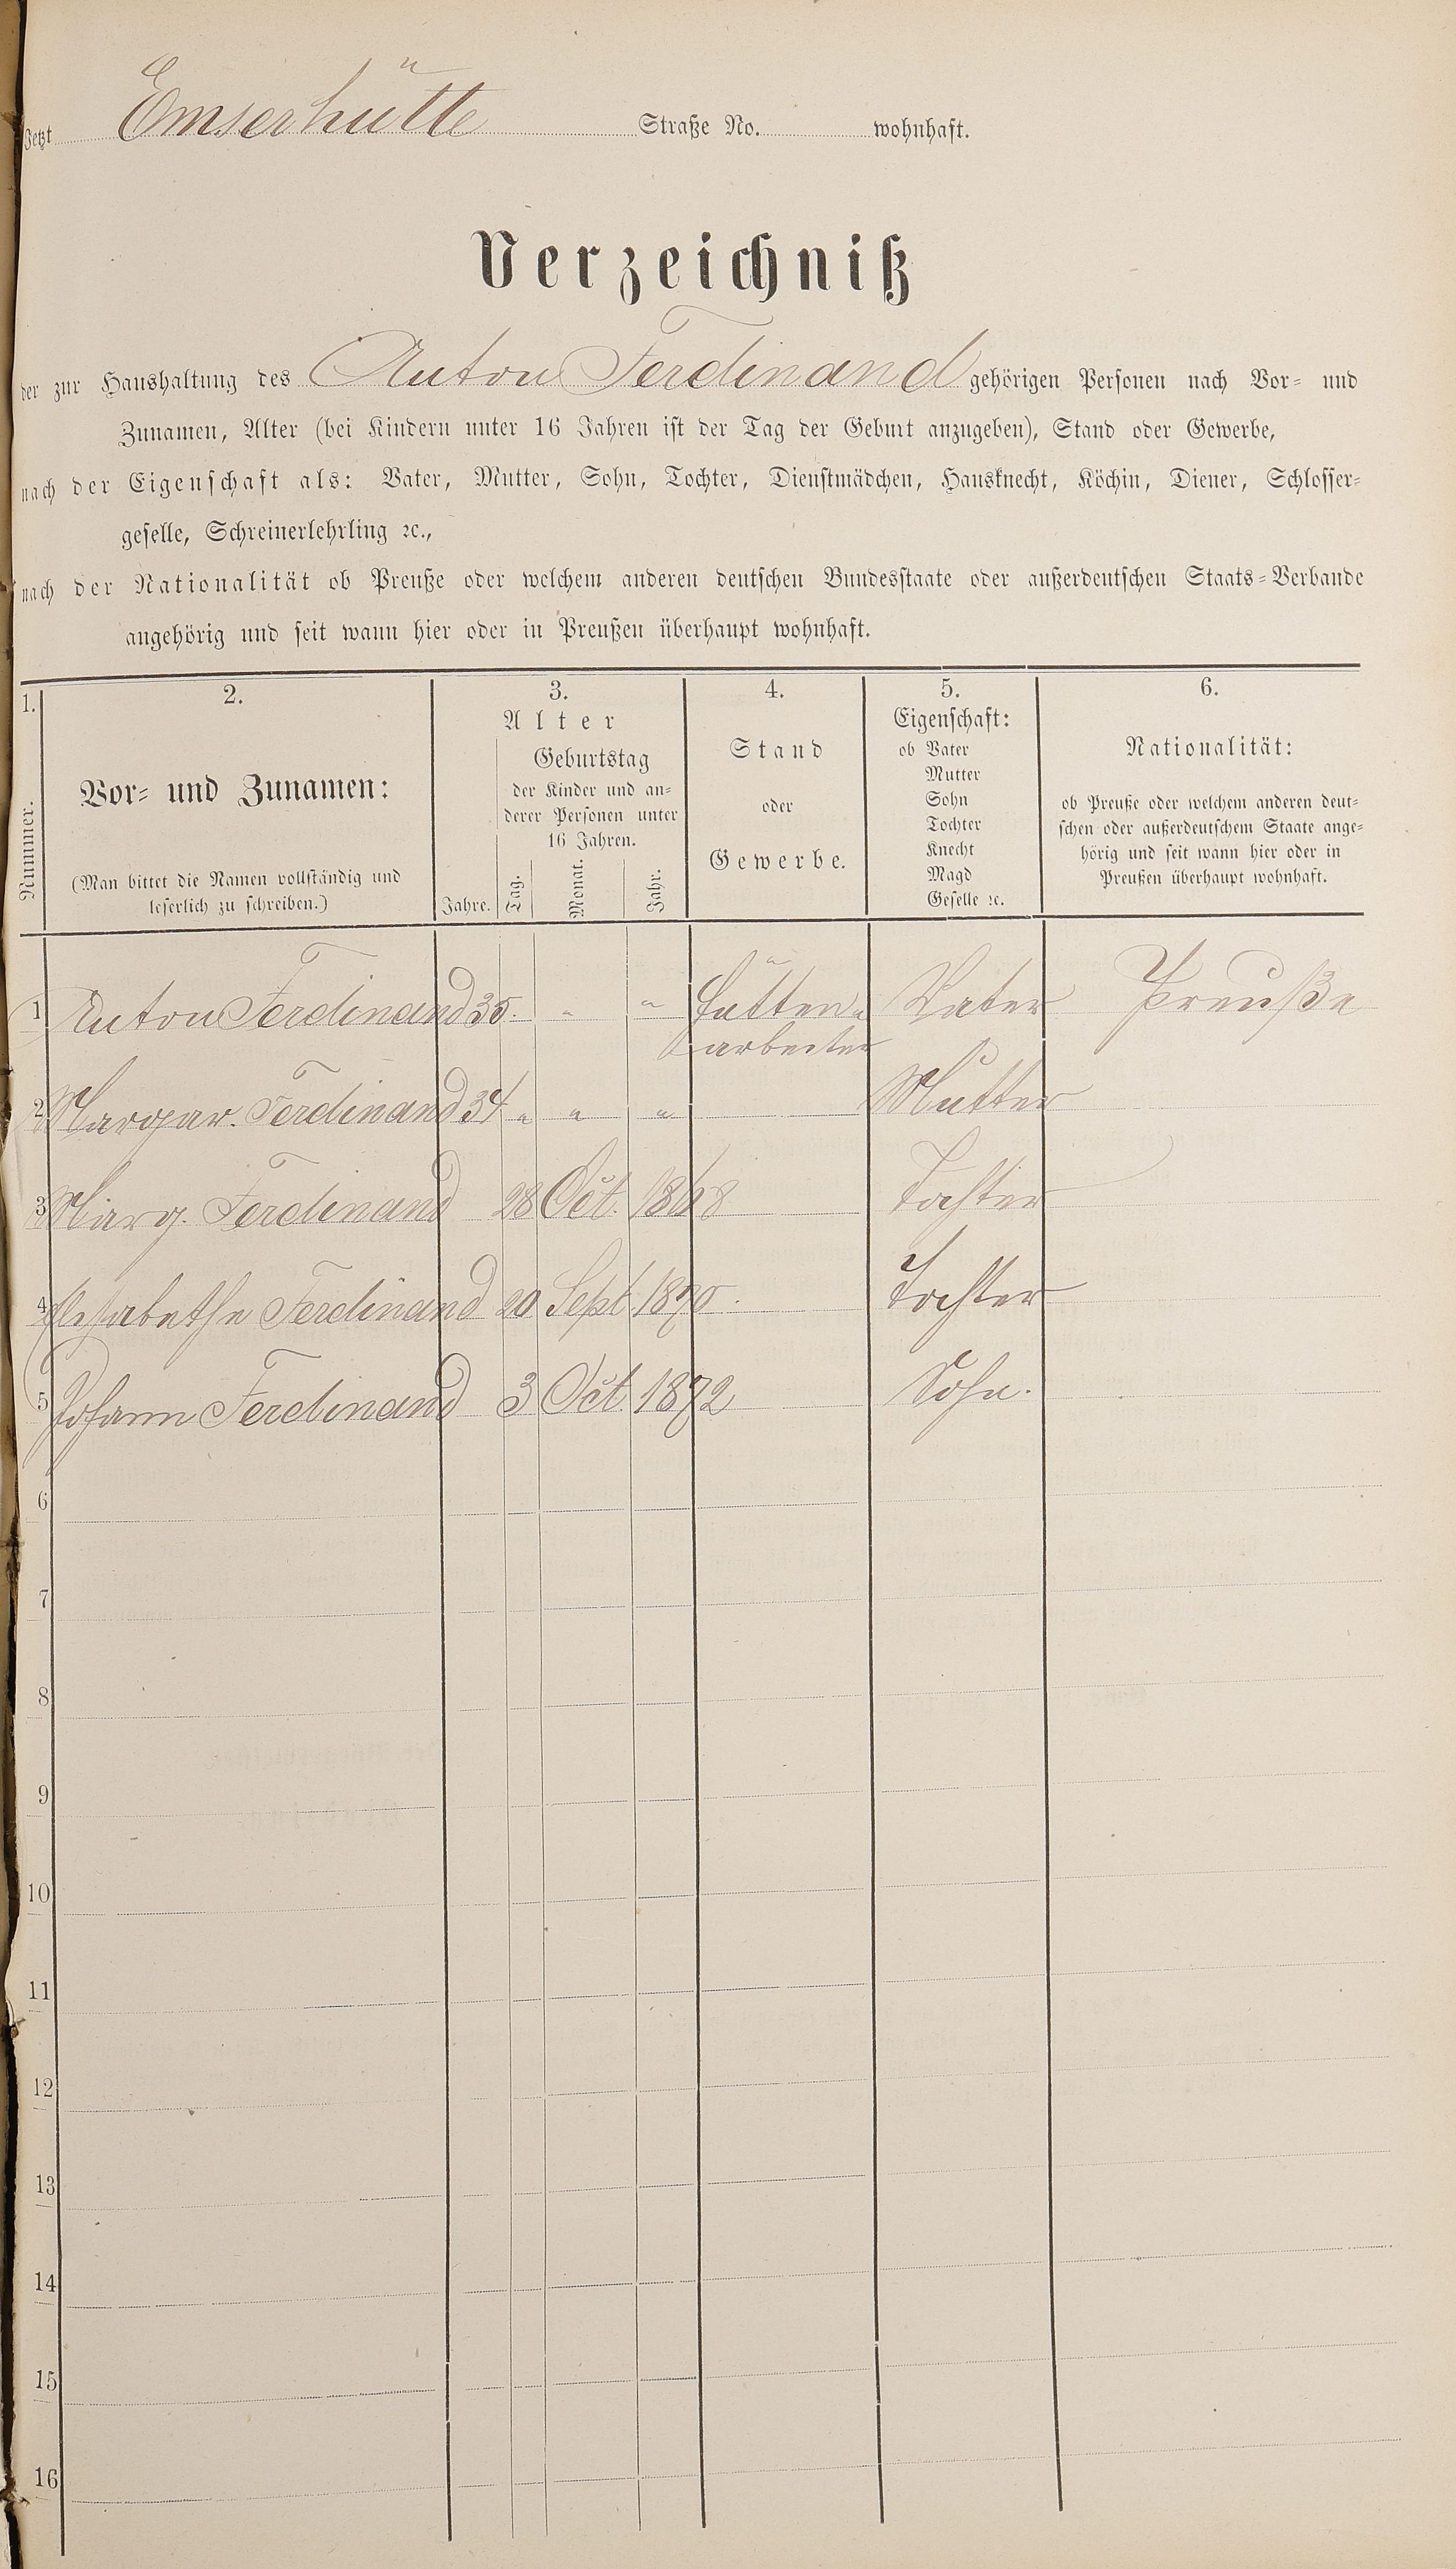 Jetzt Emserhütte Straße No. wohnhaft.
Verzeichniß
der zur Haushaltung des Anton Ferdinand gehörigen Personen nach Vor- und
Zunamen, Alter (bei Kindern unter 16 Jahren ist der Tag der Geburt anzugeben), Stand oder Gewerbe,
nach der Eigenschaft als: Vater, Mutter, Sohn, Tochter, Dienstmädchen, Hausknecht, Köchin, Diener, Schlosser-
geselle, Schreinerlehrling ꝛc.,
nach der Nationalität ob Preuße oder welchem anderen deutschen Bundesstaate oder außerdeutschen Staats-Verbande
angehörig und seit wann hier oder in Preußen überhaupt wohnhaft.
1. 2. 3. 4. 5. 6.
Nummer.
Vor- und Zunamen:
(Man bittet die Namen vollständig und
leserlich zu schreiben.)
Alter
Jahre.
Geburtstag
der Kinder und an-
derer Personen unter
16 Jahren.
Tag. Monat. Jahr.
Stand
oder
Gewerbe.
Eigenschaft:
ob Vater
Mutter
Sohn
Tochter
Knecht
Magd
Geselle ꝛc.
Nationalität:
ob Preuße oder welchem anderen deut-
schen oder außerdeutschem Staate ange-
hörig und seit wann hier oder in
Preußen überhaupt wohnhaft.
1 Anton Ferdinand 35. " " Hütten- Vater Preuße
arbeiter
2 Margar. Ferdinand 34 " " " Mutter
3 Marg. Ferdinand 28 Oct. 1868 Tochter
4 Elisabethe Ferdinand 20 Sept 1870. Tochter
5 Johann Ferdinand 3 Oct. 1872 Sohn.
6
7
8
9
10
11
12
13
14
15
16